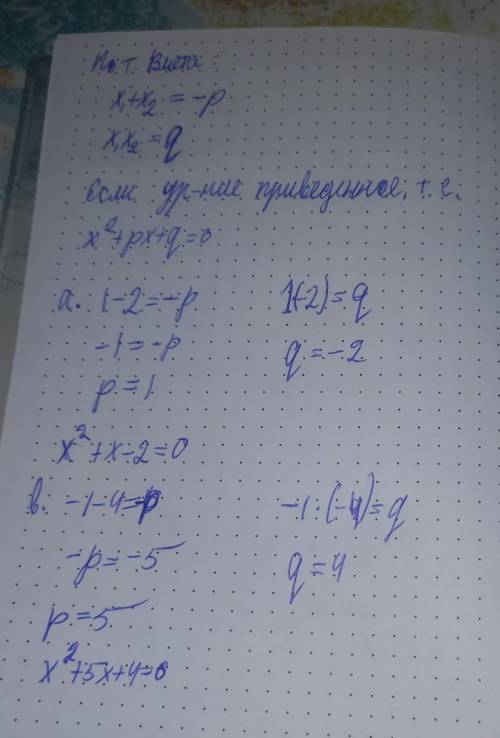 По т. Виета:
x₁+x₂ = -p
x₁x₂ = q
если ур-ние приведенное, т. е.
x²+px+q=0
а. 1-2=-p 1(-2)=q
-1=-p q=-2
p=1
x²+x-2=0
в. -1-4=p -1·(-4)=q
-p=-5 q=4
p=5
x²+5x+4=0